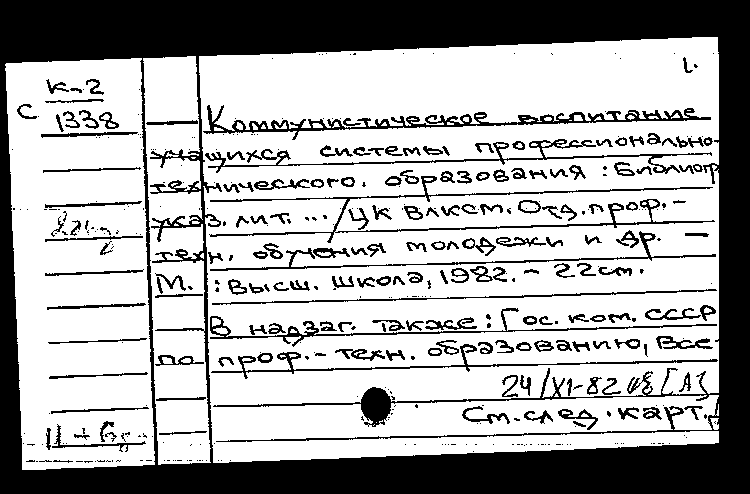 1.
К-2
С 1338
Коммунистическое воспитание
учащихся системы профессионально-
технического. образования : Библиогр
указ. лит. ... / ЦК ВЛКСМ. Отд. проф.-
техн. обучения молодежи и др. –
М. : Высш. школа, 1982. – 22см.
В надзаг. также : Гос. ком. СССР
по проф.-техн. образованию, Все-
24/XI-82
См. след. карт.